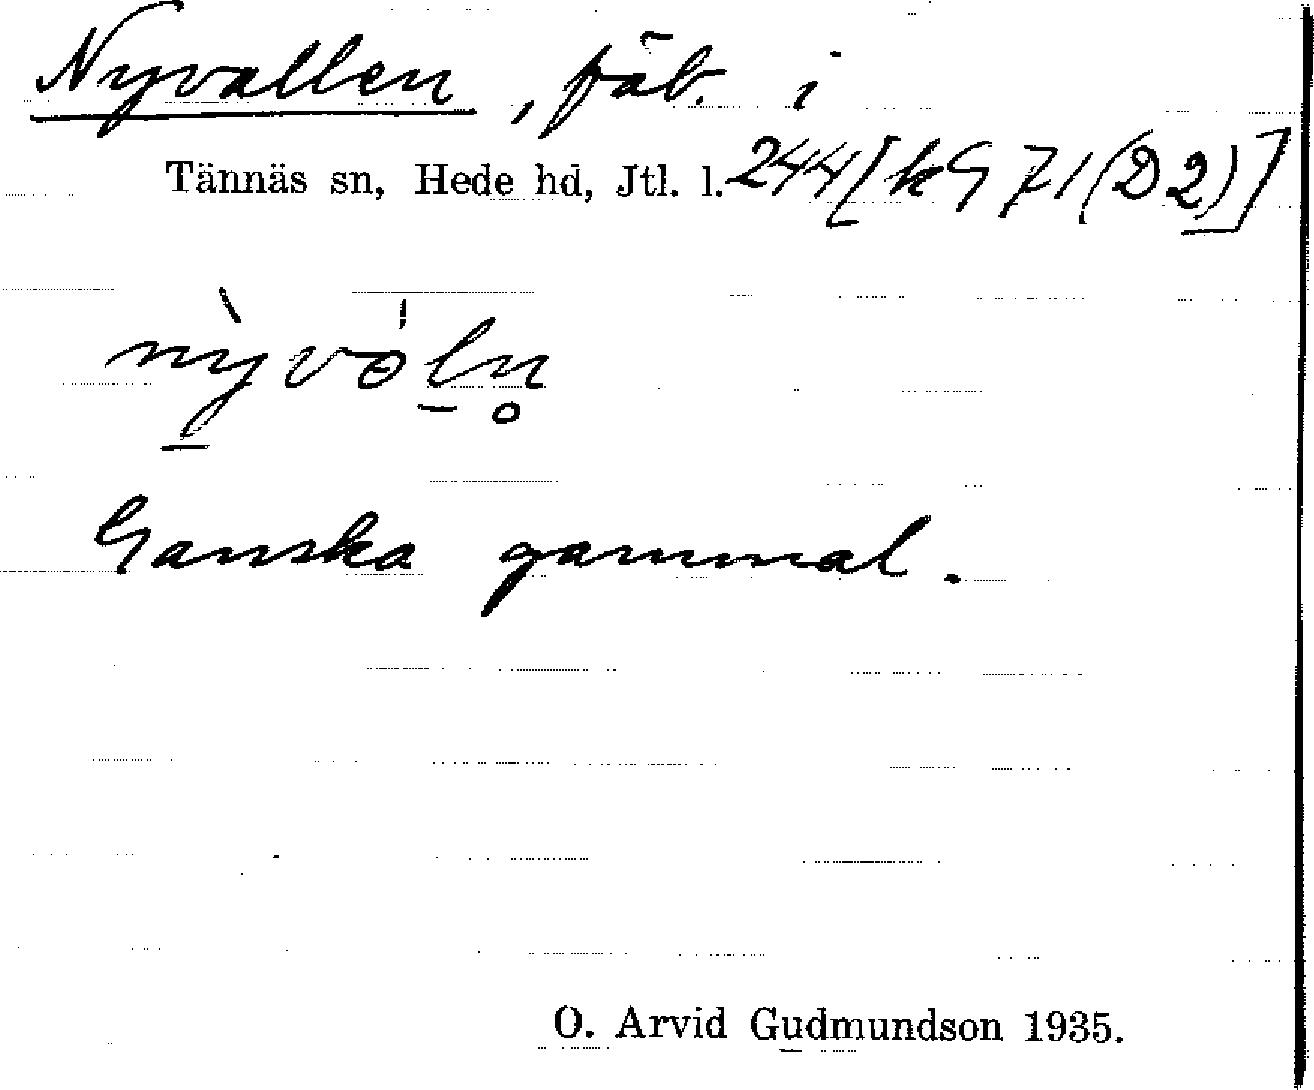 Nyvallen, fäb. i
Tännäs sn, Hede hd, Jtl. l. 244[kG71(D2)]
nỳvól̠n̥
Ganska gammal.
O. Arvid Gudmundson 1935.